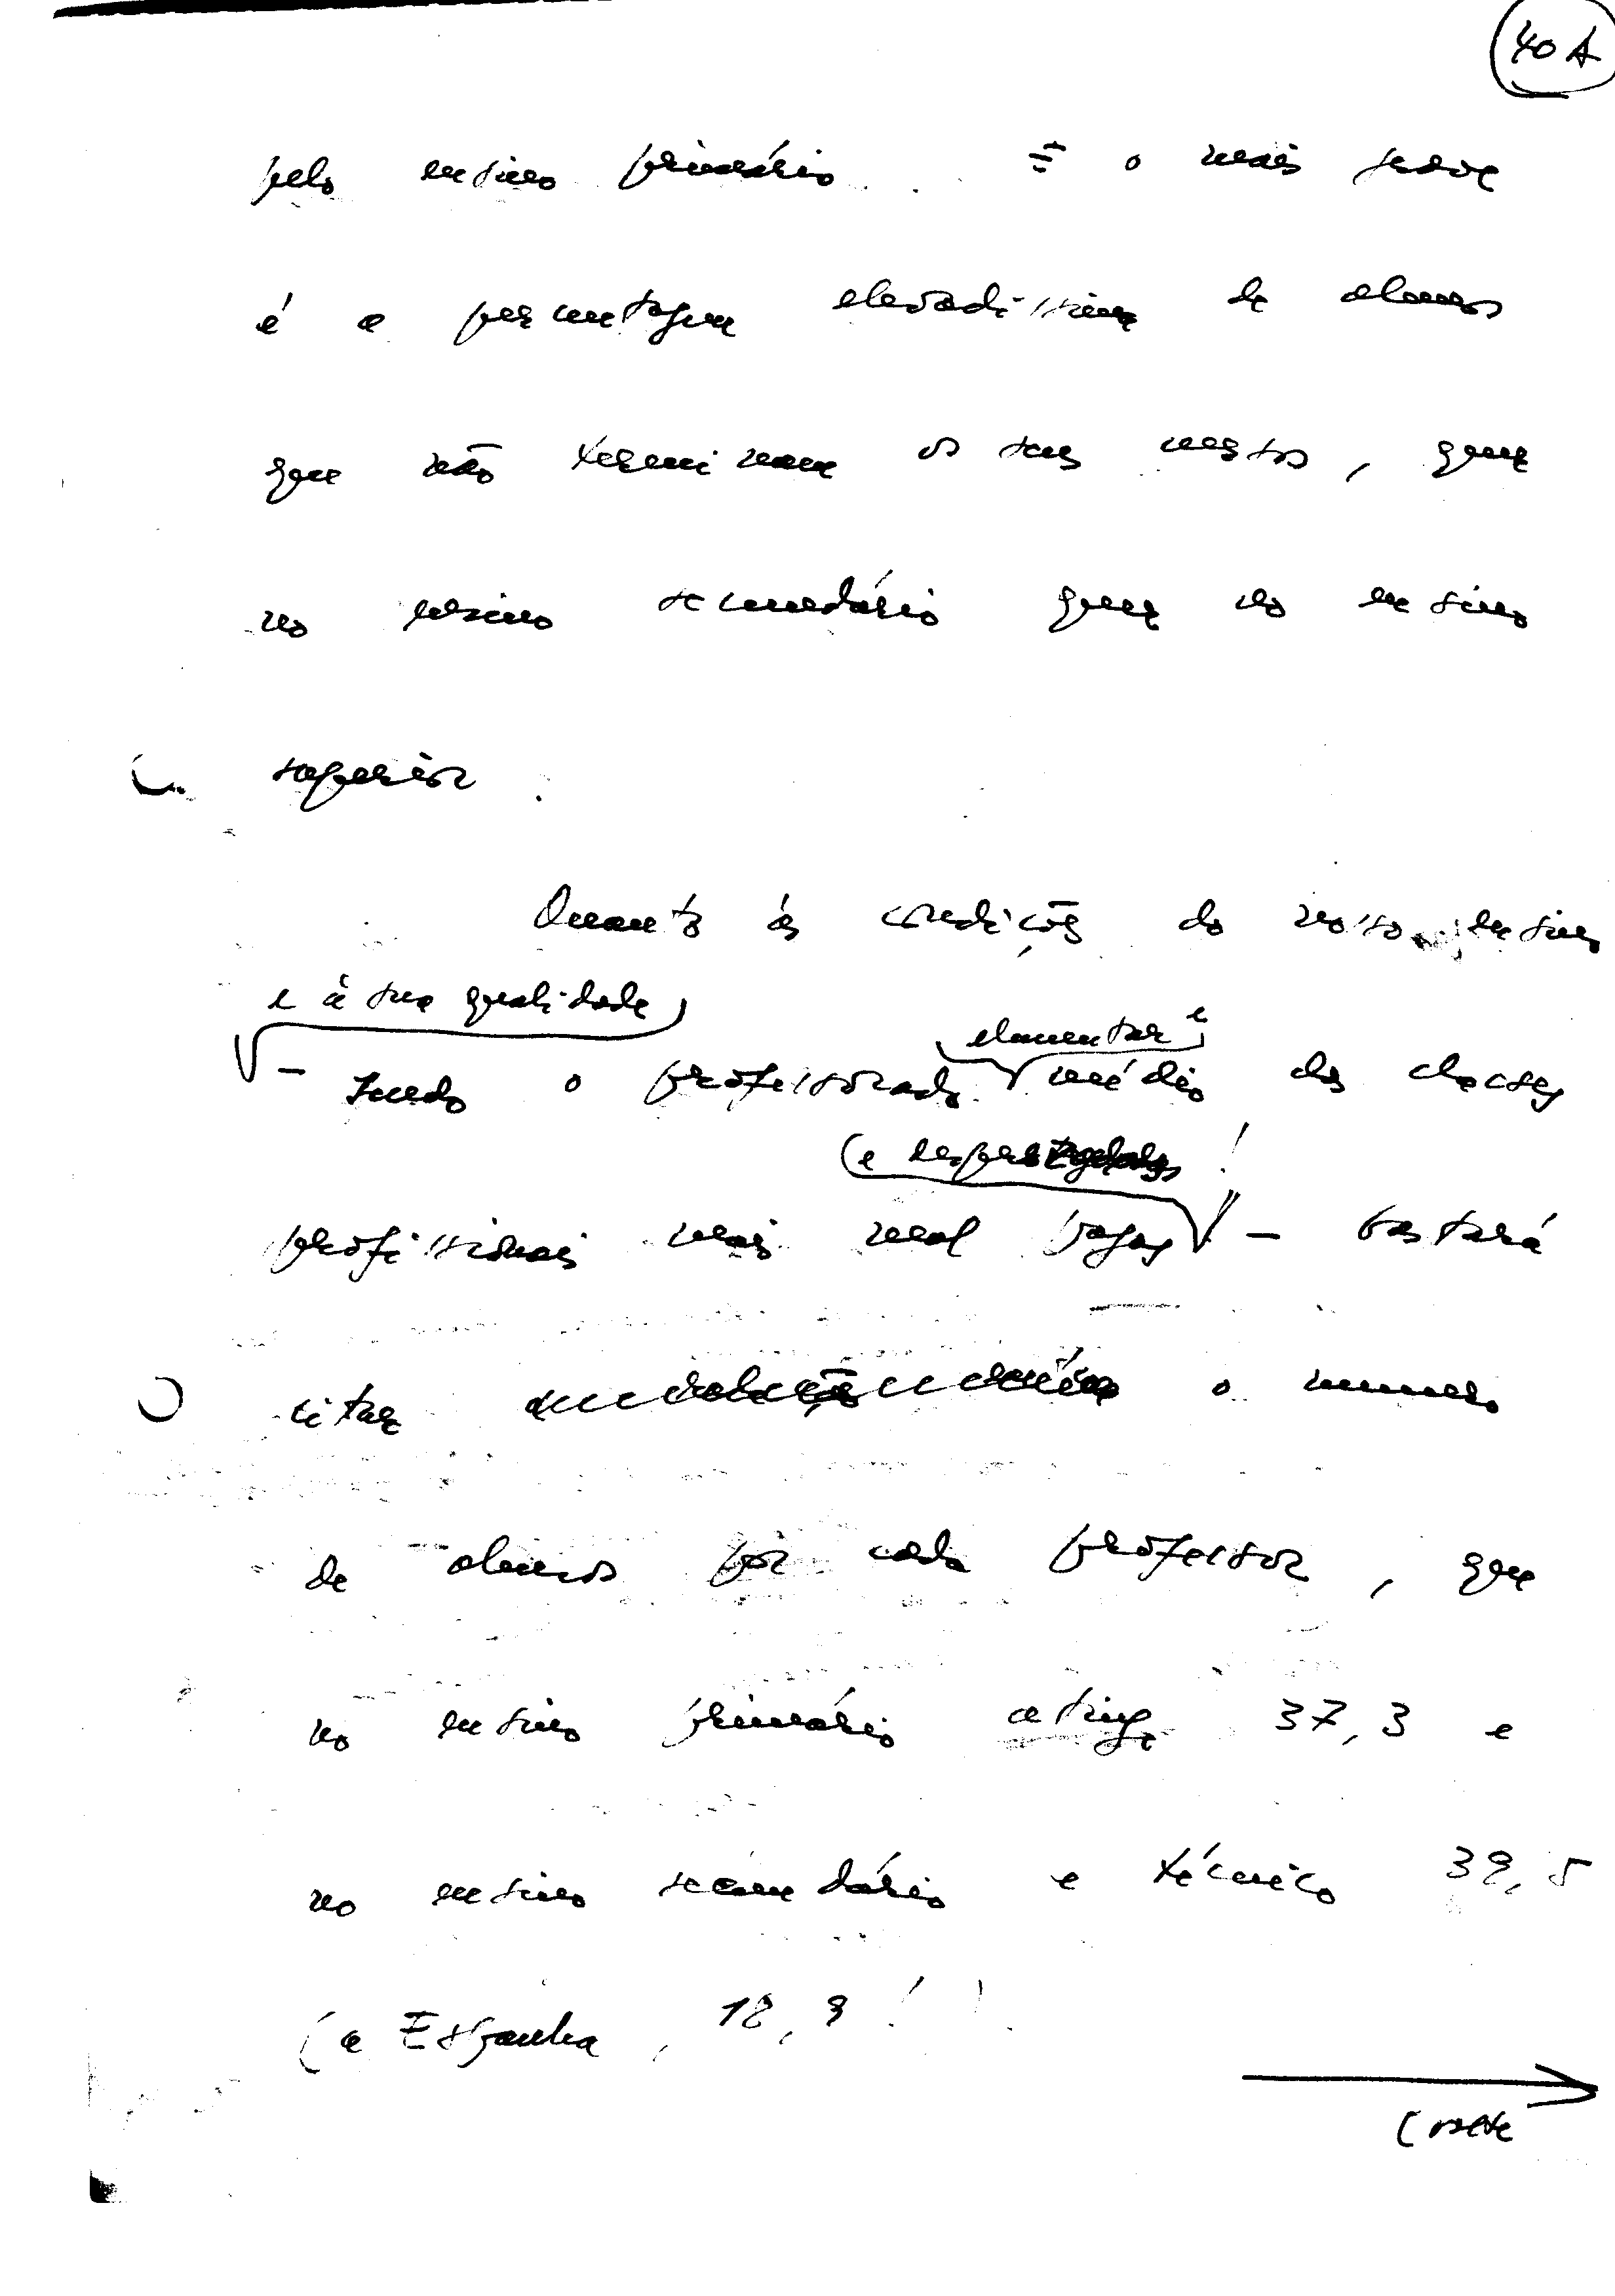 40 A
pelo ensino primário. E o mais grave
é a percentagem elevadíssima de alunos
que não terminam os seus cursos, quer
no ensino secundário quer no ensino
superior.
Quanto às condições do nosso ensino
e à sua qualidade
elementar e
– sendo o professorado médio das classes
(e desprestigiadas!
profissionais mais mal pagas – bastará
citar o número
de alunos por cada professor, que
no ensino primário atinge 37,3 e
no ensino secundário e técnico 39,5
(a Espanha, 18,9!)